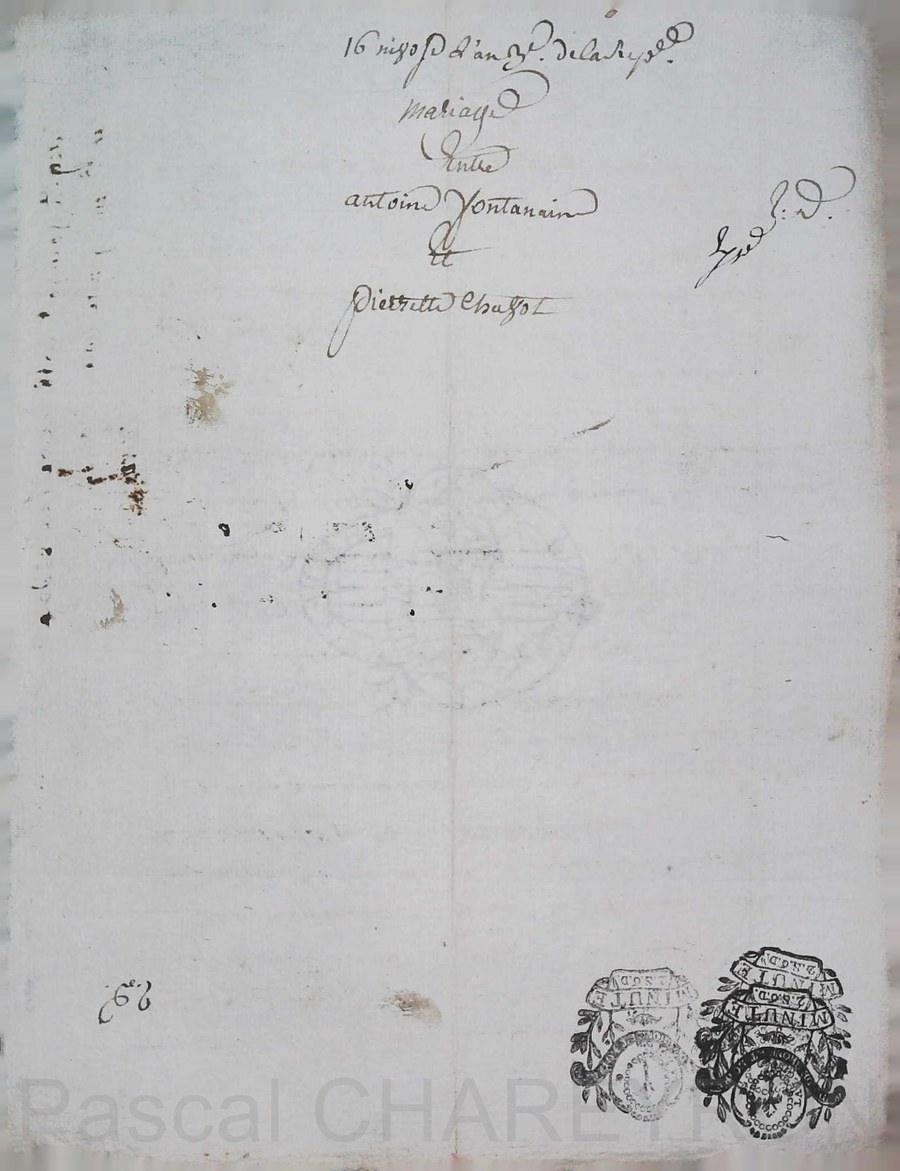 16 nivose l'an 3e. de la Repe.
mariage
Entre
antoine fontanaine
Et
pierrette Chassot
MINUTE
2.S.6.D.
MINUTE
2.S.6.D.
MINUTE
2.S.6.D.
Pascal CHAREYRON